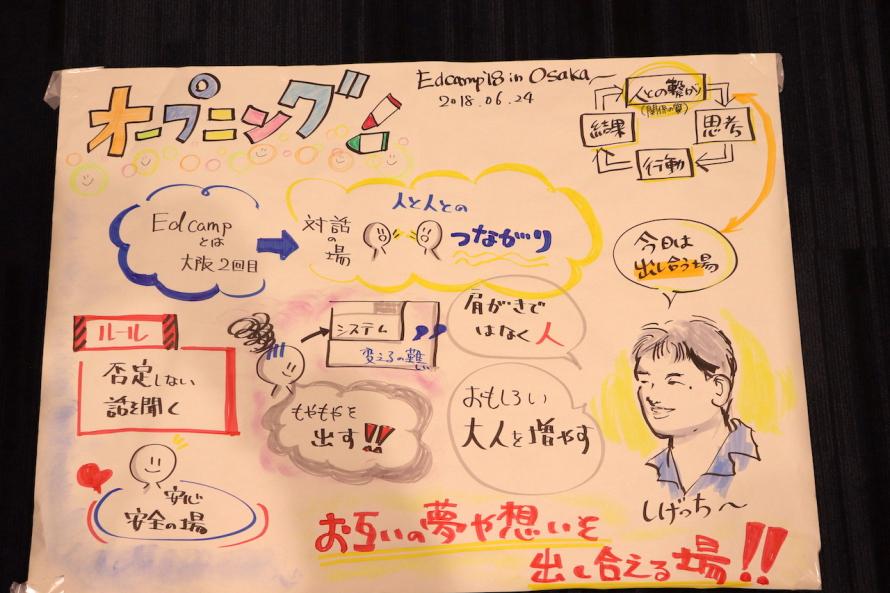 オープニング!
Edcamp'18 in Osaka
2018.06.24
人との繋がり
(関係の質)
思考
行動
結果
Edcamp
とは
大阪2回目
対話の場
人と人との
つながり
今日は
出し合う場
ルール
否定しない
話を聞く
システム
変えるの難しい
もやもやを
出す!!
肩がきで
はなく人
おもしろい
大人を増やす
しげっち〜
安心
安全の場
お互いの夢や想いを
出し合える場!!